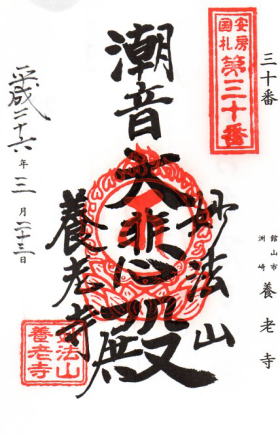 三十番
館山市
洲崎
養老寺
安房
国札
第三十番
妙法山
潮音大悲殿
養老寺
平成二十六年三月二十三日
妙法山
養老寺